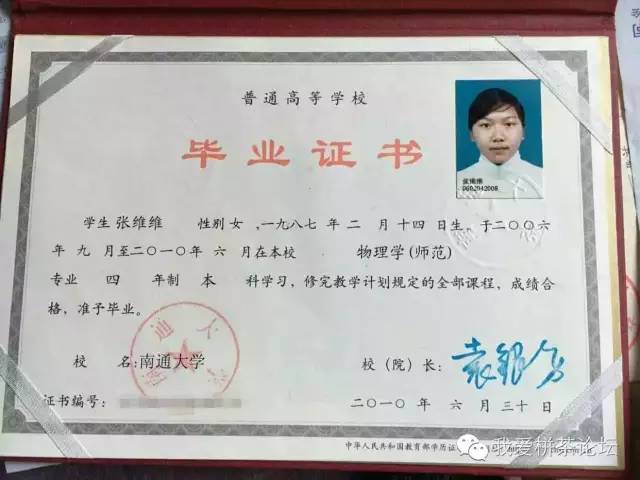 普通高等学校
毕业证书
张维维
0602042008
学生 张维维 性别 女 ,一九八七 年 二 月 十四 日生, 于二〇〇六
年 九 月至二〇一〇年 六 月在本校 物理学(师范)
专业 四 年制 本 科学习, 修完教学计划规定的全部课程, 成绩合
格, 准予毕业。
校 名: 南通大学 校(院)长:
证书编号:
二〇一〇 年 六 月 三十 日
中华人民共和国教育部学历证
我爱栟茶论坛